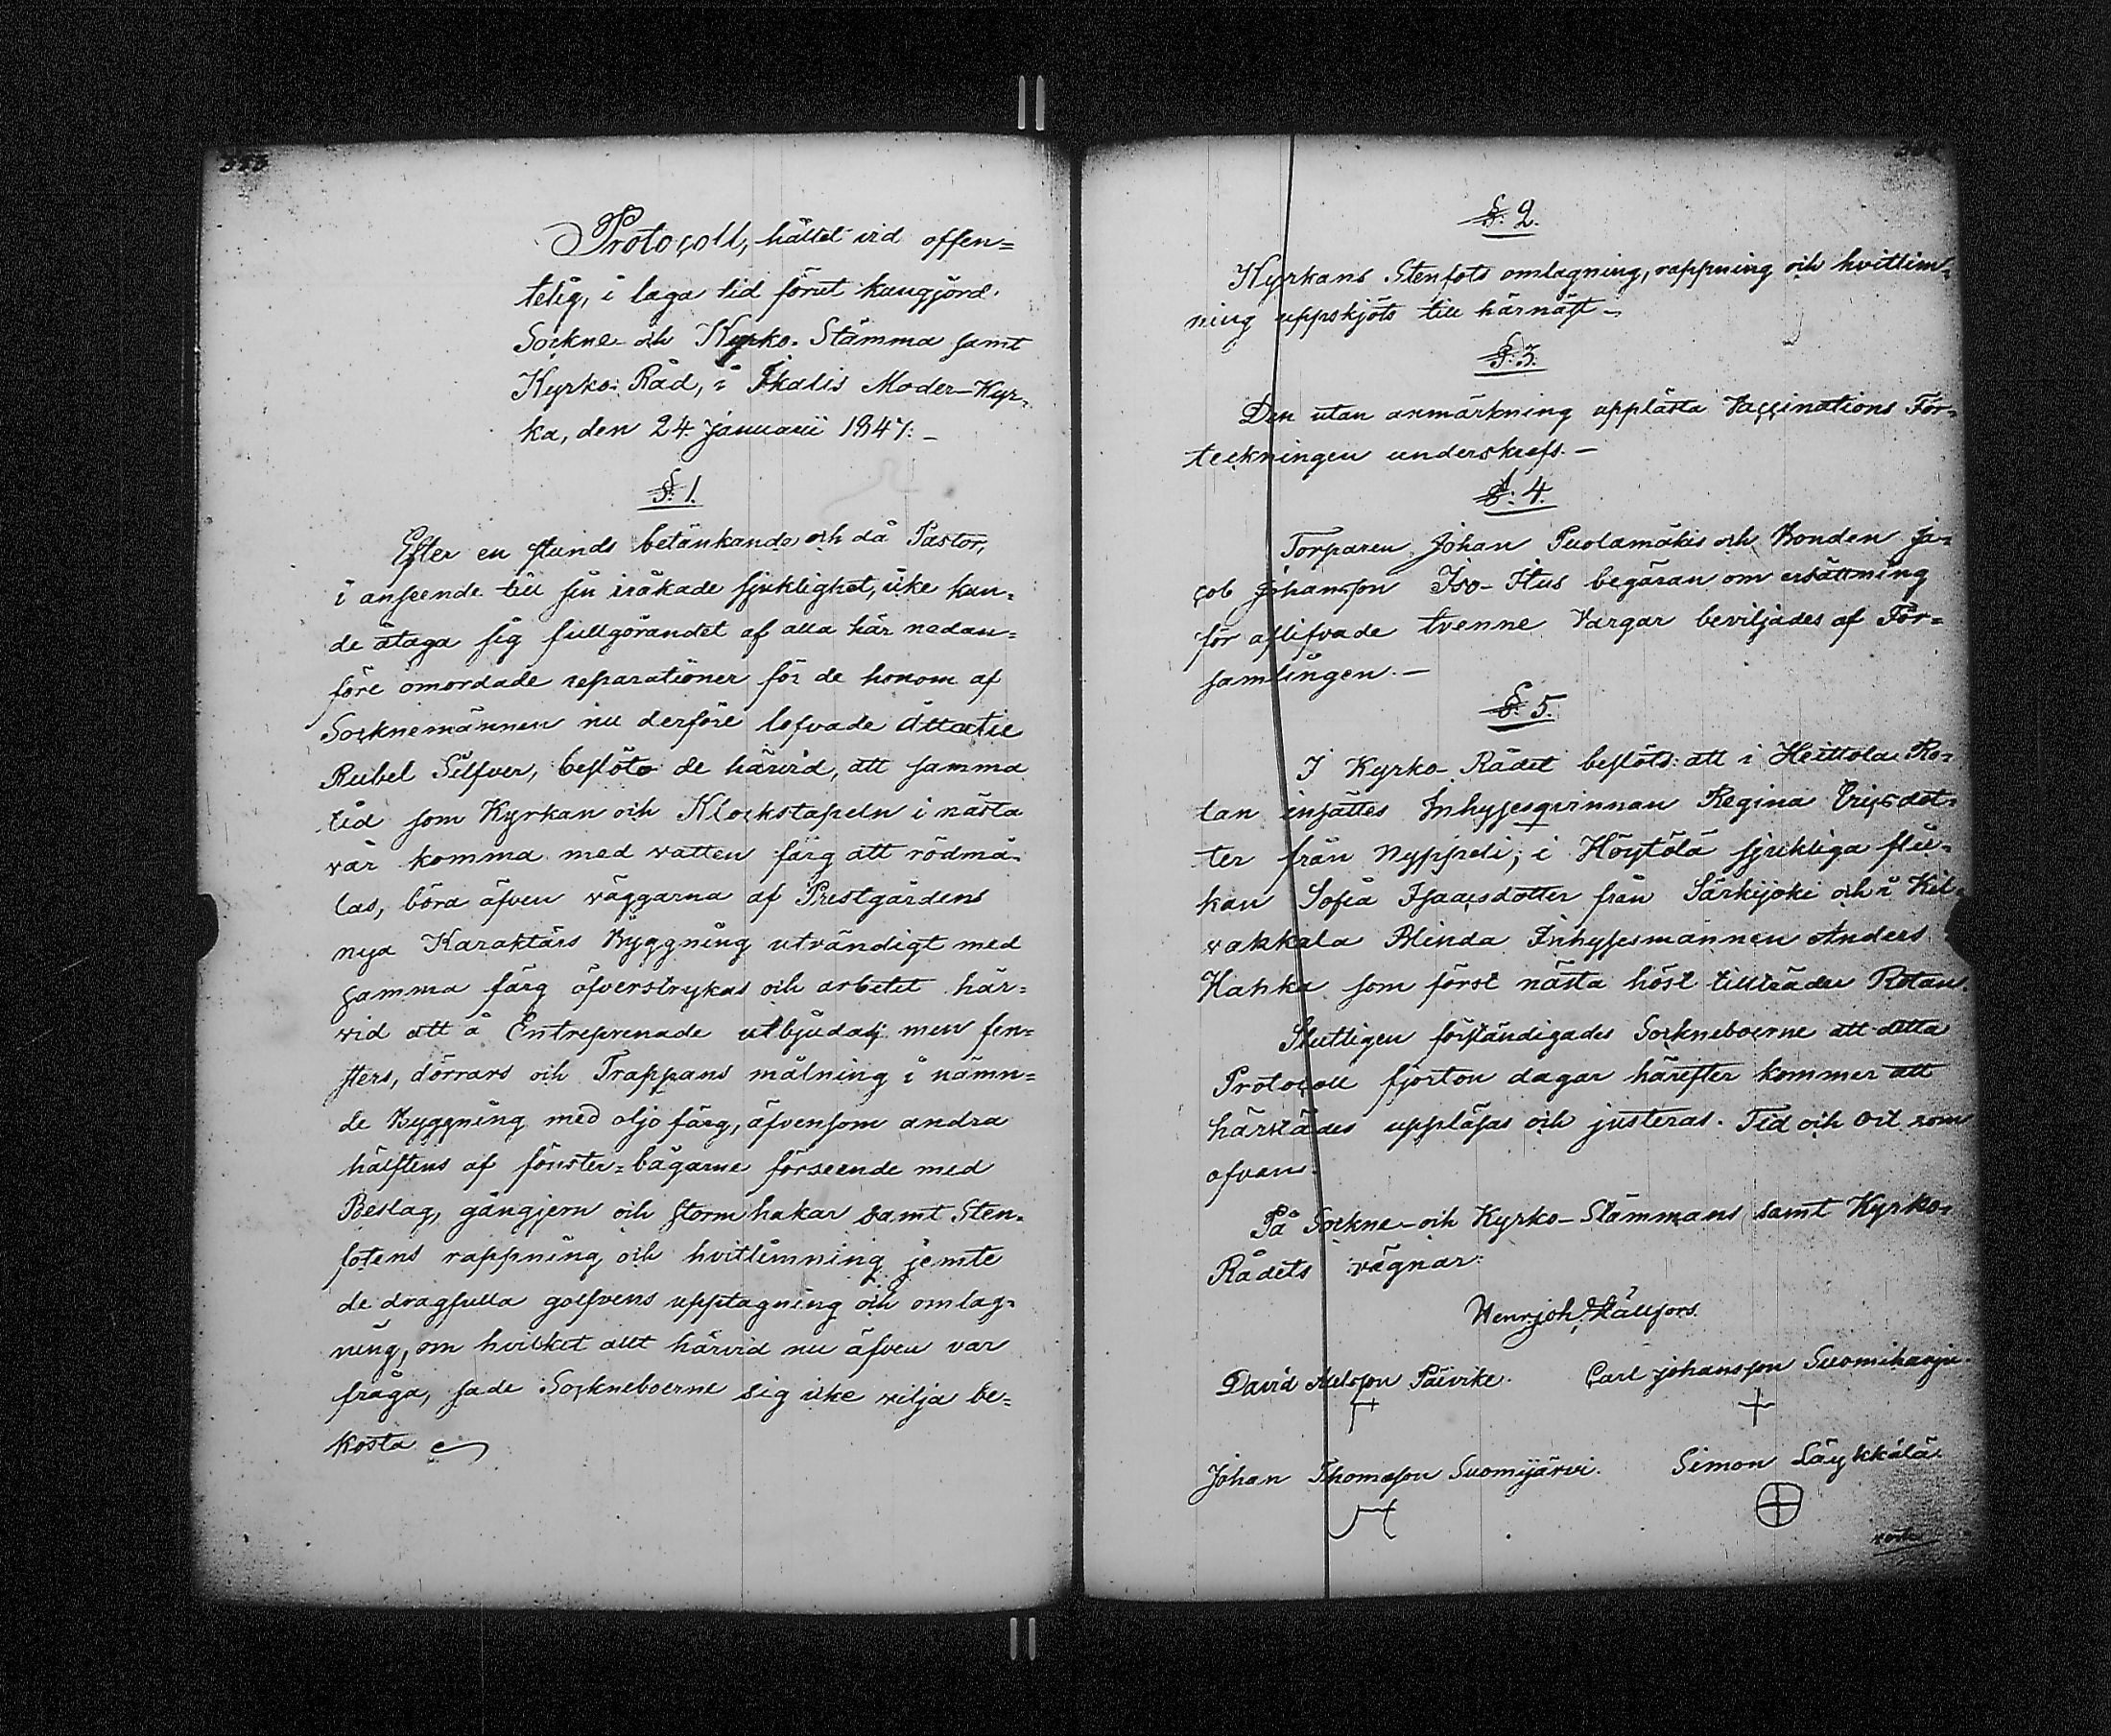 343
Protocoll, hållet vid offen=
telig, i laga tid förut kungjord
Sockne- och Kyrko-Stämma samt
Kyrko-Råd, i Ikalis Moder-Kyr-
ka, den 24 Januarii 1847. -
§. 1.
Efter en stunds betänkande och då Pastor,
i anseende till sin iråkade sjuklighet, icke kun-
de åtaga sig fullgörandet af alla här nedan=
före omordade reparationer för de honom af
Socknemännen nu derföre lofvade Åttatie
Rubel Silfver, beslöto de härvid, att samma
tid som Kyrkan och Klockstapeln i nästa
vår komma med vatten färg att rödmå-
las, böra äfven väggarna af Prestgårdens
nya Karaktärs Byggning utvändigt med
samma färg öfverstrykas och arbetet här=
vid att å Entreprenade utbjudas; men fen=
sters, dörrars och Trappans målning i nämn=
de Byggning med oljo färg, äfvensom andra
hälftens af fönster=bågarne förseende med
Beslag, gångjern och stormhakar samt Sten-
fotens rappning och hvitlimning jemte
de dragfulla golfvens upptagning och omlag-
ning, om hvilket allt härvid nu äfven var
fråga, sade Sockneboerne sig icke vilja be=
kosta
§. 2.
Kyrkans Stenfots omlagning, rappning och hvitlim-
ning uppskjöts till härnäst -
§. 3.
Den utan anmärkning upplästa Vaccinations För-
teckningen underskrefs. -
§. 4.
Torparen Johan Puolamäkis och Bonden Ja-
cob Johansson Iso-Itus begäran om ersättning
för aflifvade tvenne Vargar beviljades af För=
samlingen. -
§. 5.
I Kyrko-Rådet beslöts: att i Heittola Ro-
tan insättes Inhysesqvinnan Regina Ericsdot-
ter från Nyppeli; i Höytölä sjukliga flic-
kan Sofia Isaacsdotter från Särkijoki och i Kil-
vakkala Blinda Inhysesmannen Anders
Hahka som först nästa höst tillträder Rotan.
Slutligen förständigades Sockneboerne att detta
Protocoll fjorton dagar härefter kommer att
härstädes uppläsas och justeras. Tid och ort som
ofvan.
På Sockne- och Kyrko-Stämmans samt Kyrko-
Rådets vägnar:
Henr. Joh. Hällfors.
David Päivike. Carl Johansson Suomiharju.
Johan Thomasson Suomijärvi. Simon Läykkälä.